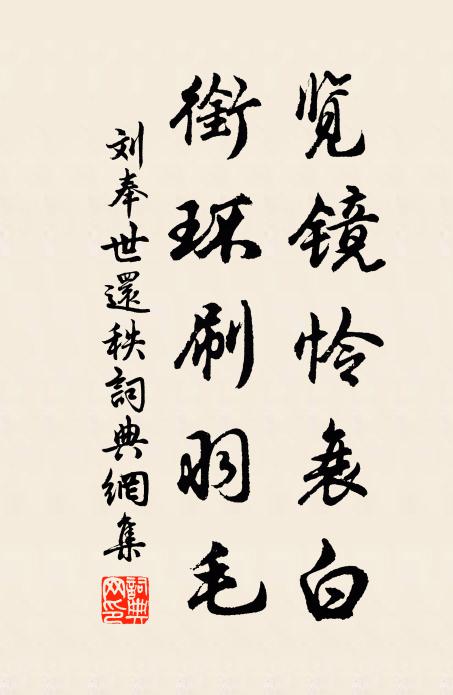 览镜怜衰白
衔环刷羽毛
刘奉世還秩詞典網集
詞典網印